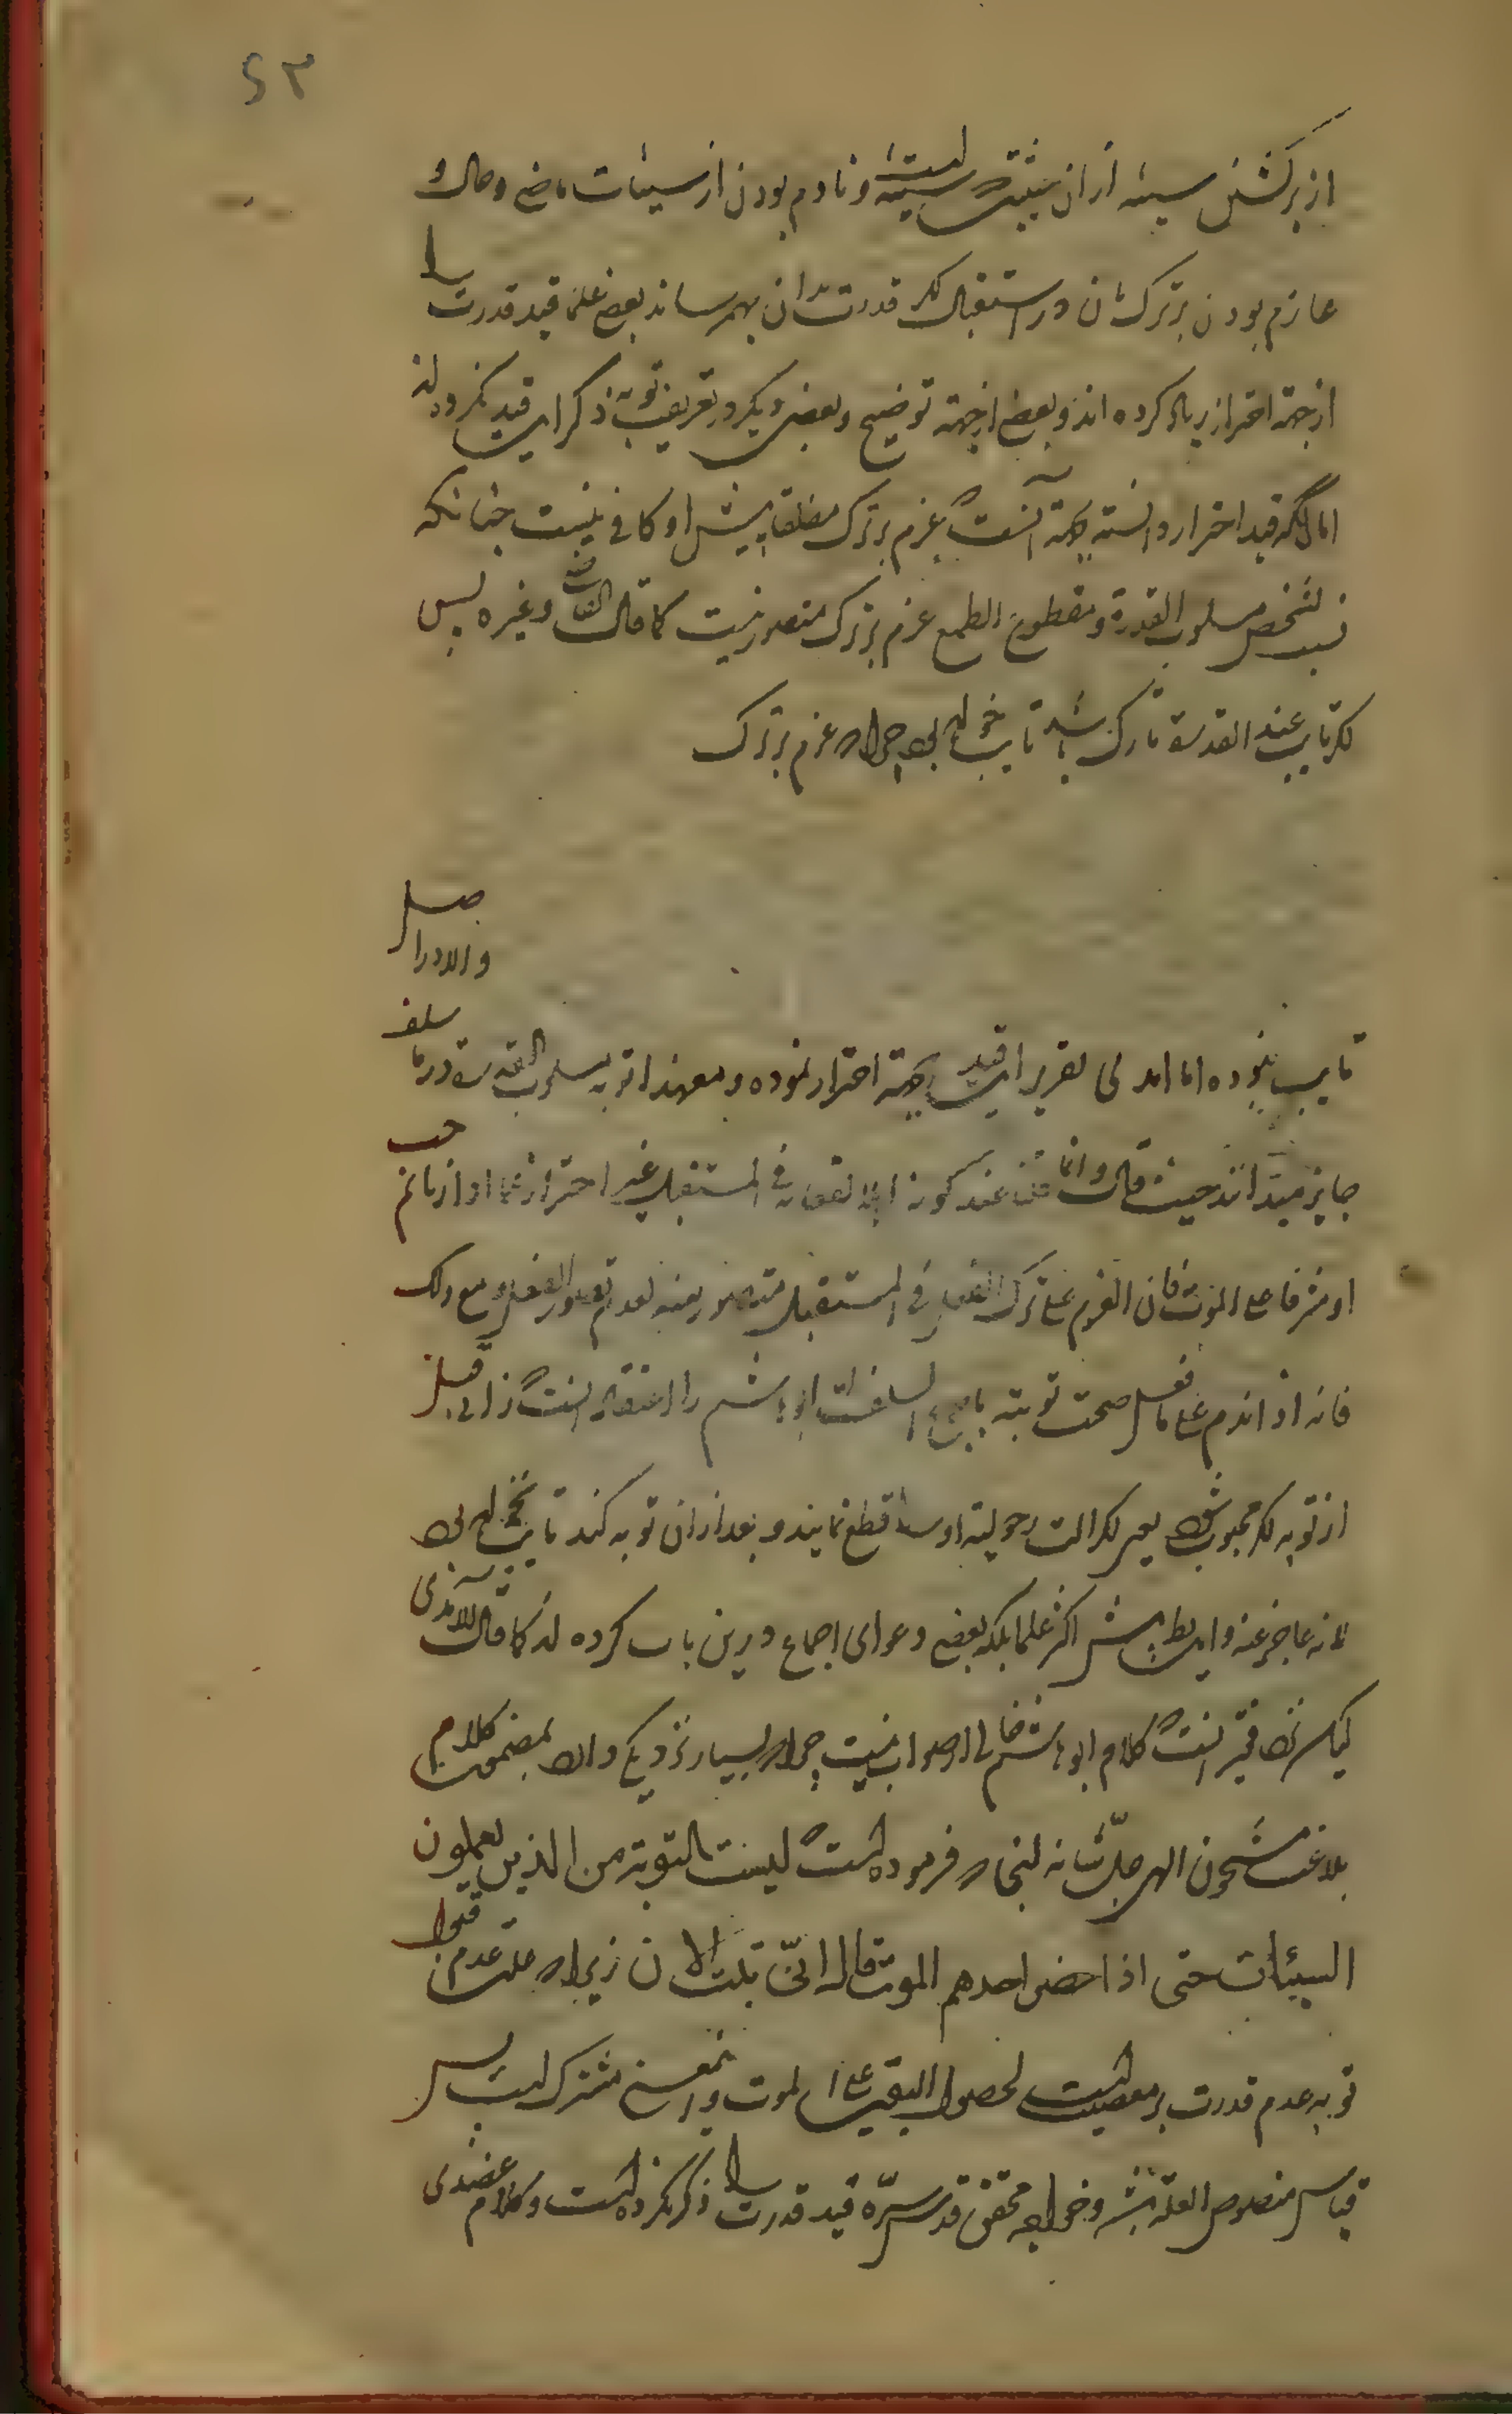 ۶۳
از برگشتن سیئه از ان حیثیت که سیئه است و نادم بودن از سیئات ماضی و حال و
عازم بودن بر ترک آن در استقبال که قدرت بر آن بهم رساند بعضی علما قید قدرت را
از جهة احتراز زیاد کرده اند و بعضی از جهة توضیح و بعضی دیگر در تعریف توبه ذکر این قید نکرده اند
اما آنکه قید احتراز دانسته بجهة آنست که عزم بر ترک مطلقا پیش او کافی نیست چنانکه
شخص مسلوب القدرة و مقطوع الطمع عزم بر ترک متصور نیست کما قال وغیره پس
تایب عند القدرة تارک باشد تایب خواهد بود چرا که عزم بر ترک
حاصل
والا در
تایب نبوده اما تقریر این قید بجهة احتراز نموده و معهذا توبه مسلوب القدرة در ما سلف
جایز میداند حیث قال وانما قلنا عند کونه اهلا لفعله فی المستقبل احترازا عما اذا زنا ثم جب
او مشرفا علی الموت فان العزم علی ترک الفعل فی المستقبل متصور منه لعدم تصور الفعل ومع ذلک
فانه اذا ندم علی ما فعل صحت توبته باجماع السلف ابو هاشم را اعتقاد انست که زانی قبل
از توبه که مجبوب شود یعنی که الت رجولیت او را قطع نمایند و بعد از ان توبه کند تایب نخواهد بود
لانه عاجز عنه و این باطل پیش اکثر علما بلکه بعضی دعوای اجماع درین باب کرده اند کما قال الآمدی
لیکن نزد فقیر انست که کلام ابو هاشم خالی از صواب نیست چرا که بسیار نزدیک و الا بمضمون کلام
بلاغت مشحون الهی جلّ شانه انجا که فرموده است که لیست التوبة من الذین یعملون
السیئات حتی اذا حضر احدهم الموت قال انّی تبت الان زیرا که علت عدم قبول
توبه عدم قدرت بر معصیت است لحصول الیقین علی الموت و این معنی مشترک است پس
قیاس منصوص العلة باشد و خواجه محقق قدس سرّه قید قدرت را ذکر نکرده است و کلام عضدی